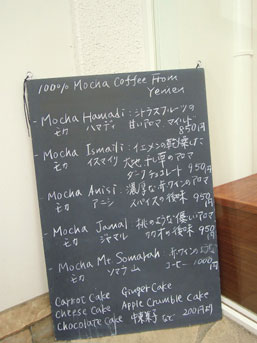 100% Mocha Coffee From
Yemen
- Mocha Hamadi : シトラスフルーツの
モカ ハマディ 甘いアロマ マイルド
850円
- Mocha Ismaili : イエメンの乾燥した
モカ イスマイリ 大地, 干し草のアロマ
ダークチョコレート 950円
- Mocha Anisi : 濃厚な赤ワインのアロマ
モカ アニシ スパイスの後味 950円
- Mocha Jamal 桃のような優しいアロマ
モカ ジャマル カカオの後味 950円
- Mocha Mt Somarah 赤ワインのような
モカ ソマラ山 コーヒー 1000円
Carrot Cake Ginger Cake
Cheese Cake Apple Crumble Cake
Chocolate Cake など 200円